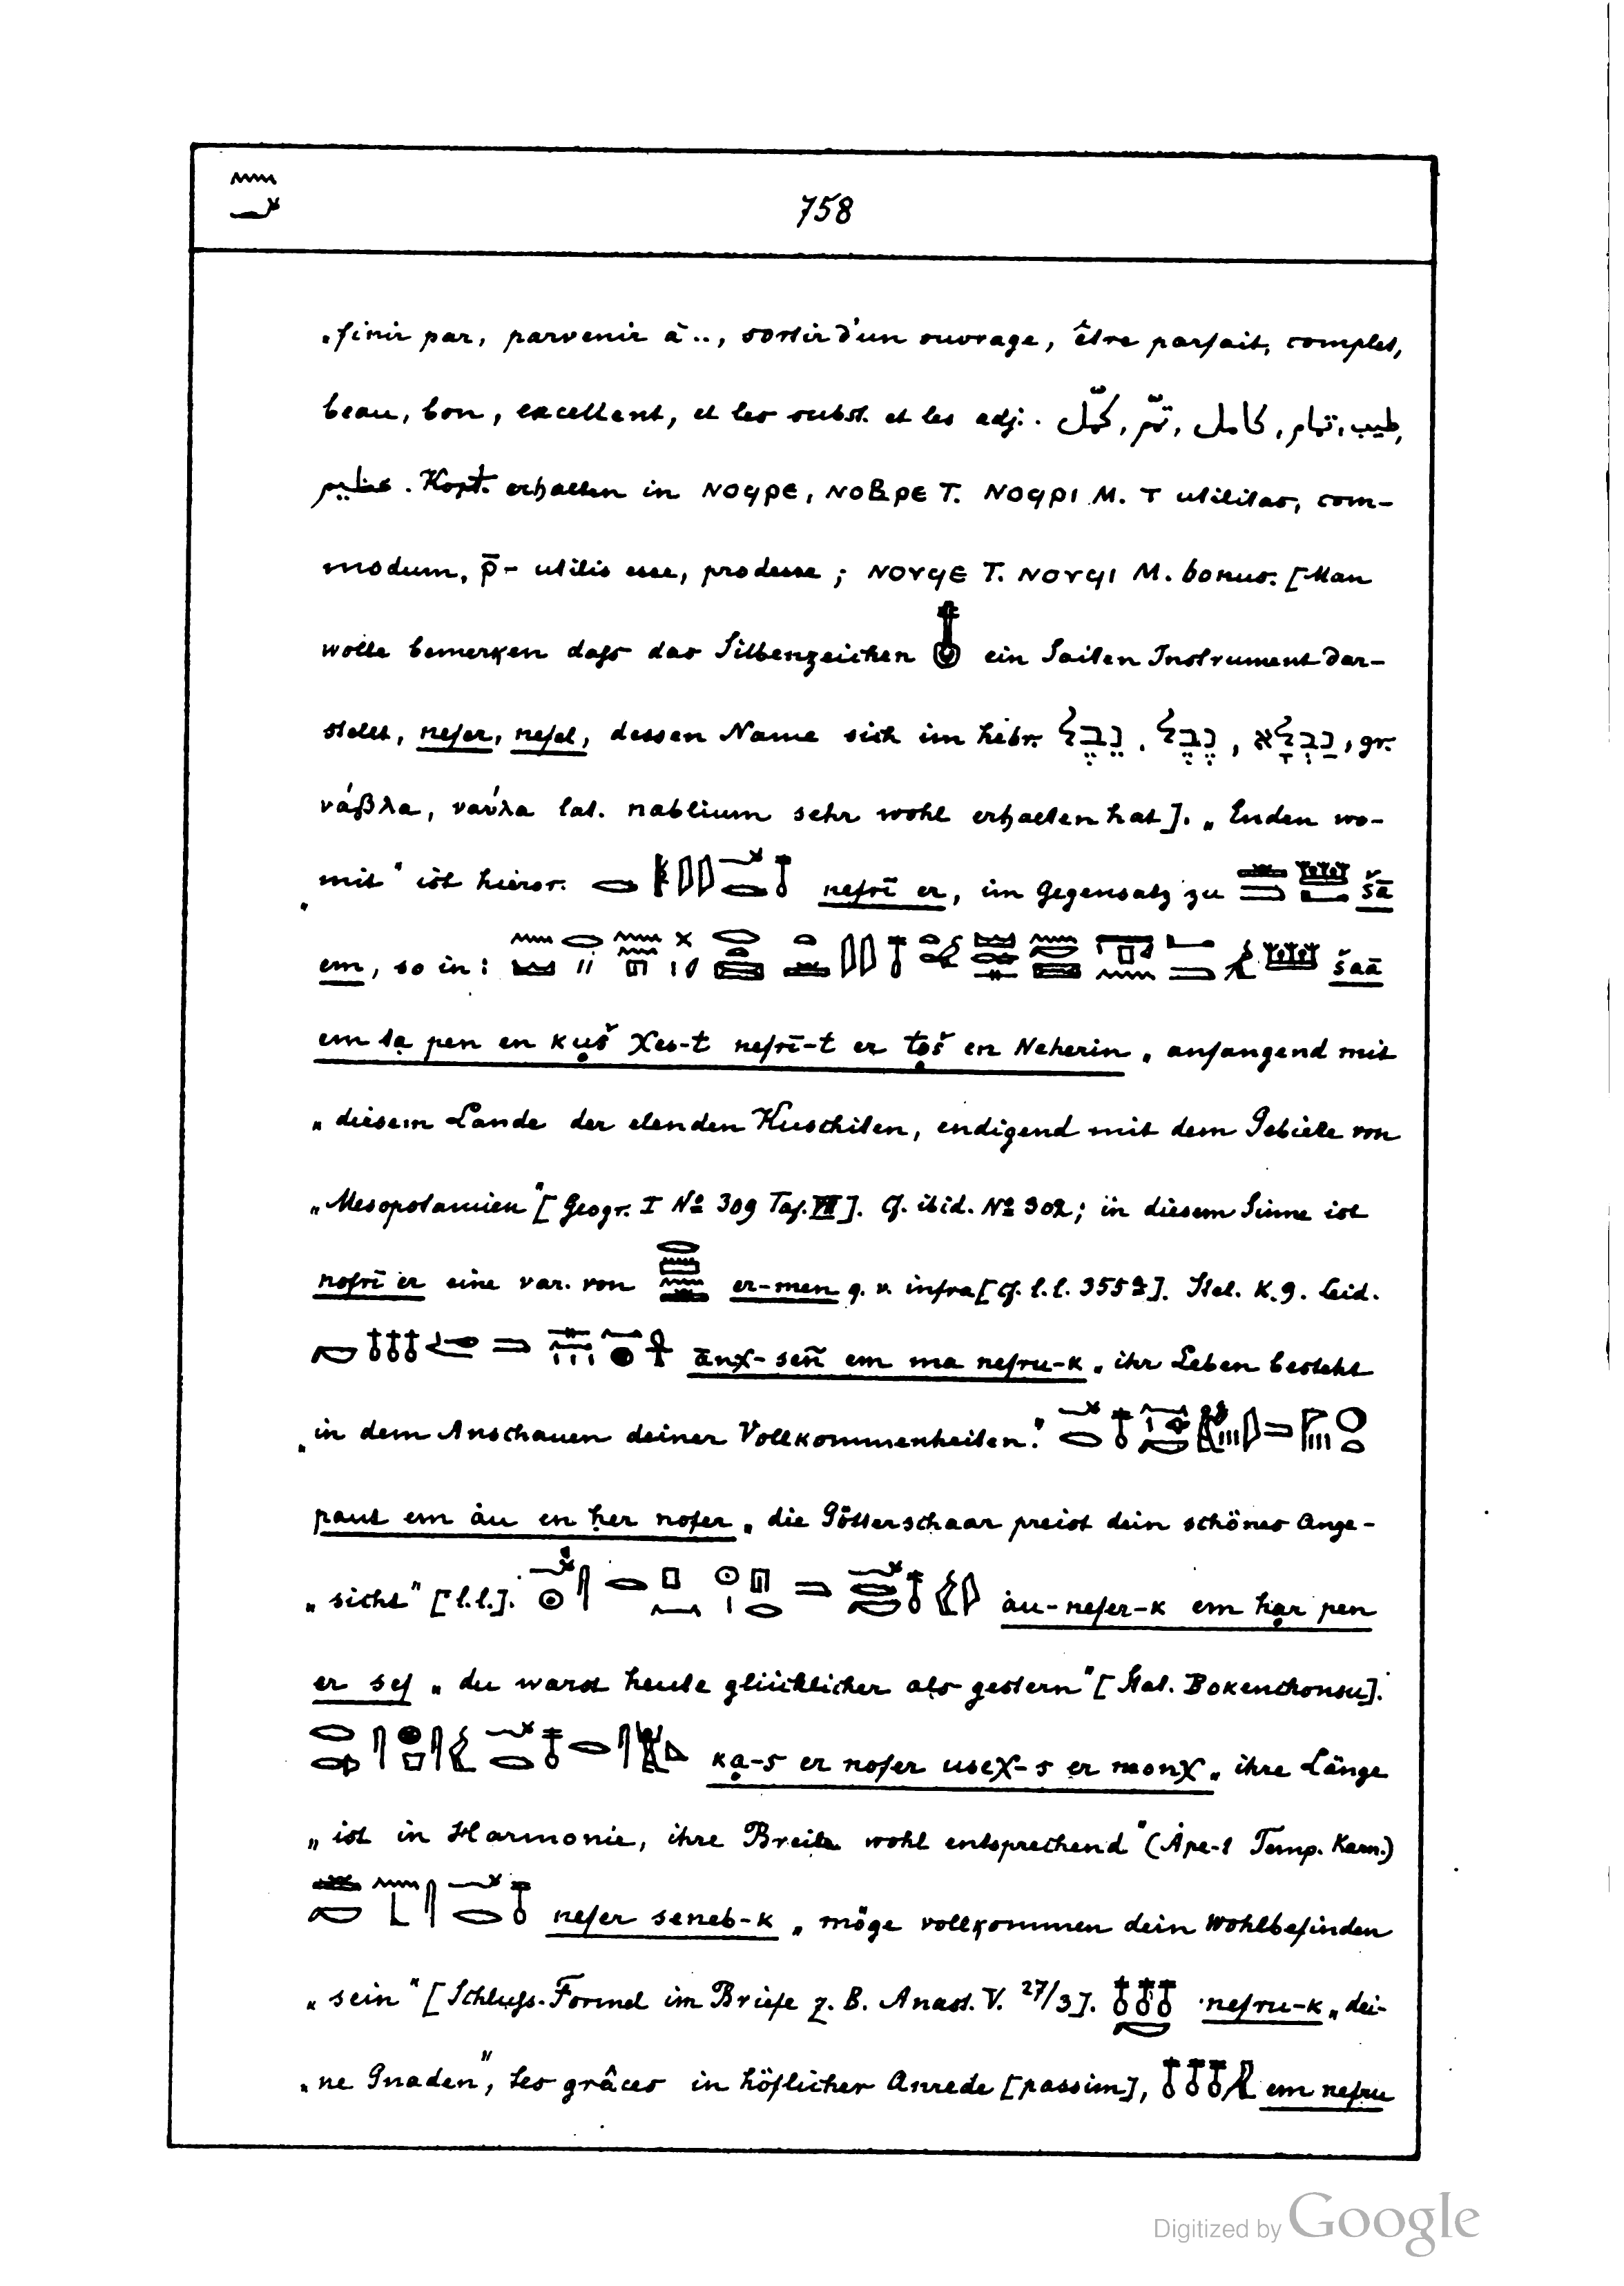 758
„finir par, parvenir à .., sortir d'un ouvrage, être parfait, complet,
beau, bon, excellent, et les subst. et les adj. كمّل ,تمّ ,كامل ,تمام ,طيب,
عظيم. Kopt. erhalten in ⲛⲟϥⲣⲉ, ⲛⲟⲃⲣⲉ T. ⲛⲟϥⲣⲓ M. ⲧ utilitas, com-
modum, ⲣ̄- utilis esse, prodesse; ⲛⲟⲩϥⲉ T. ⲛⲟⲩϥⲓ M. bonus. [Man
wolle bemerken daſs das Silbenzeichen 𓄤 ein Saiten Instrument dar-
stellt, nefer, nefel, dessen Name sich im hebr. נֵבֶל, נֶבֶל, נַבְלָא, gr.
νάβλα, ναύλα lat. nablium sehr wohl erhalten hat]. „Enden wo-
„mit" ist hieror. nefrī er, im Gegensatz zu šā
em, so in: šaā
em ta pen en kuš χes-t nefrī-t er toš en Neherin „anfangend mit
„diesem Lande der elenden Kuschiten, endigend mit dem Gebiete von
„Mesopotamien" [Geogr. I Nº 309 Taf. VII]. Cf. ibid. Nº 302; in diesem Sinne ist
nofrī er eine var. von er-men q. v. infra [cf. l. l. 355ª]. Stel. K. 9. Leid.
ānχ-señ em ma nefru-k „ihr Leben besteht
„in dem Anschauen deiner Vollkommenheiten."
paut em àu en ḥer nofer „die Götterschaar preist dein schönes Ange-
„sicht" [l. l.]. àu-nefer-k em har pen
er sef „du warst heute glücklicher als gestern" [Stat. Bokenchonsu].
ka-s er nofer useχ-s er monχ „ihre Länge
„ist in Harmonie, ihre Breite wohl entsprechend" (Àpe-t Temp. Karn.)
nefer seneb-k „möge vollkommen dein Wohlbefinden
„sein" [Schluſs-Formel im Briefe z. B. Anast. V. 27/3]. 𓄤𓄤𓄤 nefru-k „dei-
„ne Gnaden", les grâces in höflicher Anrede [passim], em nefru
Digitized by Google